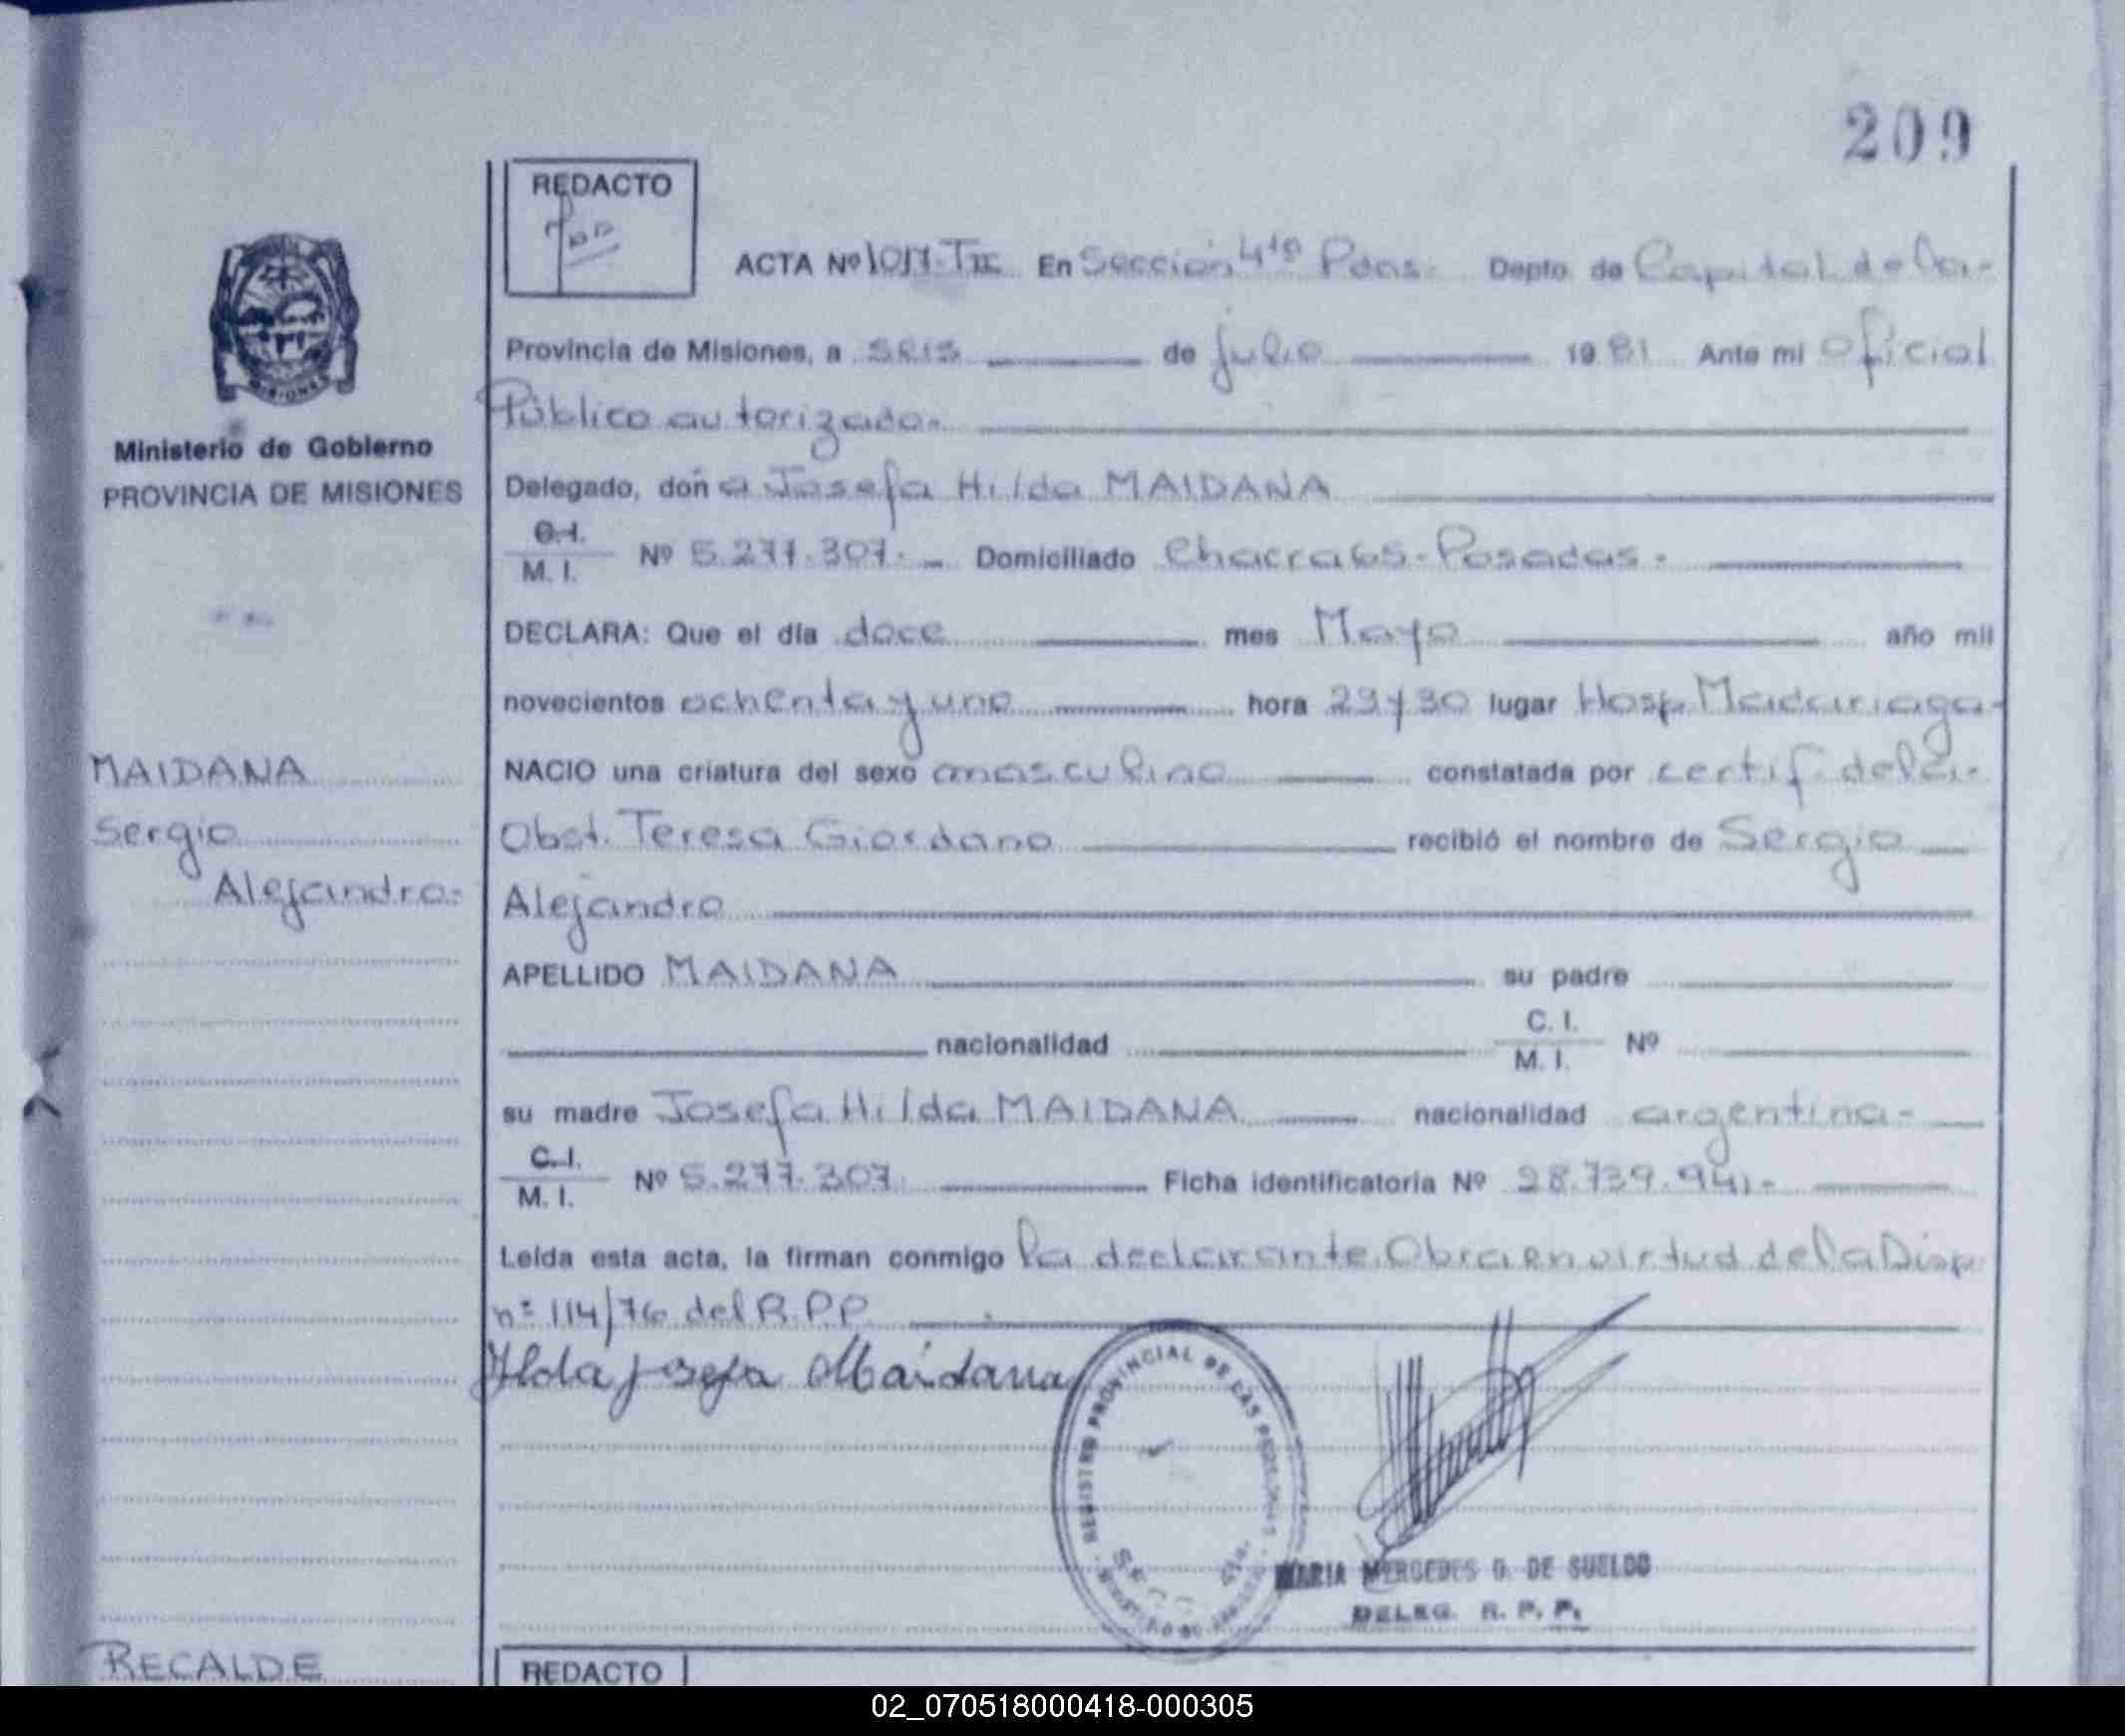 209
REDACTO
ACTA Nº 1017-TIII En Sección 4ta Pdas. Depto. de Capital de la-
Provincia de Misiones, a seis de julio 1981 Ante mi Oficial
Público autorizado.
Ministerio de Gobierno
PROVINCIA DE MISIONES
Delegado, doña Josefa Hilda MAIDANA
C.I.
M. I. Nº 5.277.307.- Domiciliado Chacra 65-Posadas.
DECLARA: Que el día doce mes Mayo año mil
novecientos ochenta y uno hora 23y30 lugar Hosp Madariaga-
MAIDANA
Sergio
Alejandro-
NACIO una criatura del sexo masculino constatada por certif. de la-
Obst. Teresa Giordano recibió el nombre de Sergio
Alejandro
APELLIDO MAIDANA su padre
nacionalidad C. I.
M. I. Nº
su madre Josefa Hilda MAIDANA nacionalidad argentina-
C.I.
M. I. Nº 5.277.307 Ficha identificatoria Nº 28.739.941-
Leída esta acta, la firman conmigo la declarante. Obra en virtud de la Disp
nº 114/76 del R.P.P.
Ilda josefa Maidana
REGISTRO PROVINCIAL DE LAS PERSONAS
MARIA MERCEDES G. DE SUELDO
DELEG. R. P. P.
RECALDE
REDACTO
02_070518000418-000305